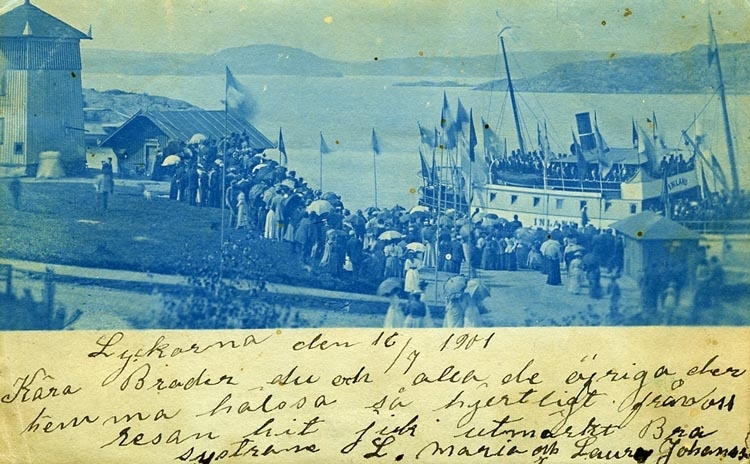 INLAND
IN
Lyckorna den 16/7 1901
Kära Broder du och alla de öfriga der
hemma halosa så hjertligt från oss
resan hit jick utmärkt Bra
systrarna L. Maria och Laura Johanss